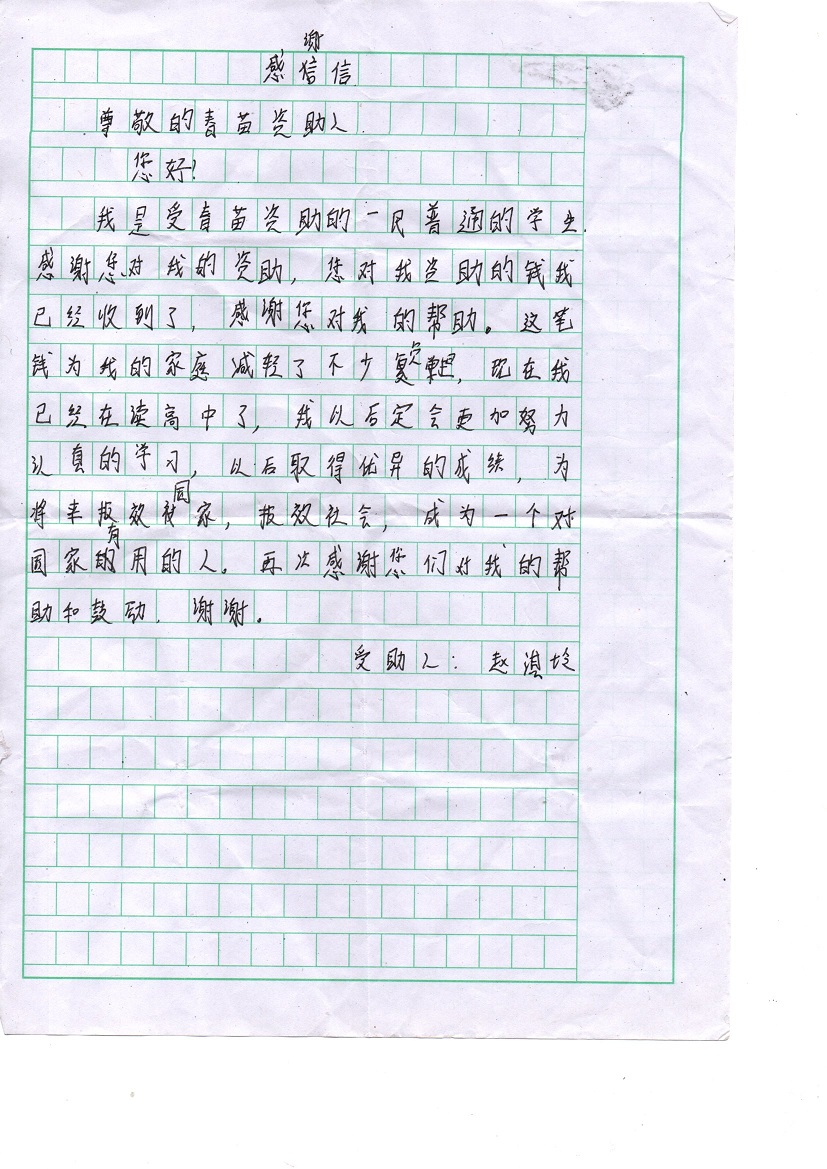 感谢信
尊敬的春苗资助人
您好!
我是受春苗资助的一民普通的学生.
感谢您对我的资助, 您对我资助的钱我
已经收到了, 感谢您对我的帮助。这笔
钱为我的家庭减轻了不少负担, 现在我
已经在读高中了, 我以后定会更加努力
认真的学习, 以后取得优异的成绩, 为
将来报效国家, 报效社会, 成为一个对
国家有用的人。再次感谢您们对我的帮
助和鼓动. 谢谢。
受助人: 赵淇